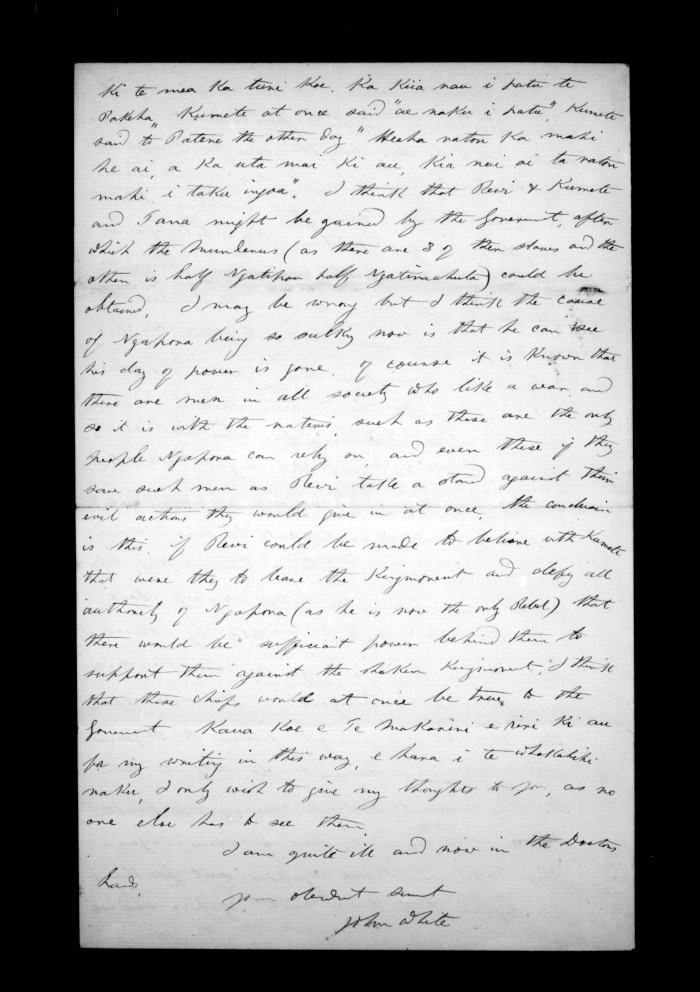 Ki te mea Ka tuni Koe. Ka Kiia nau i patu te
Pakeha" Kumete at once said "ae naku i patu". Kumete
said to Patene the other day "Heaha raton Ka mahi
he ai, a Ka uta mai Ki au, Kia nui ai ta raton
mahi i taku ingoa". I think that Rewi & Kumete
and Tana might be gained by the Goverment, after
which the murderers (as there are 3 of them slaves and the
other is half Ngatipou half Ngatimahuta) could be
obtained, I may be wrong but I think the cause
of Ngapora being so sulky now is that he can see
his day of power is gone. of course it is Known that
there are men in all society who like a war and
so it is with the natives, such as these are the only
people Ngapora can rely on, and even these if they
saw such men as Rewi take a stand against their
evil actions they would give in at once, the conclusion
is this, if Rewi could be made to believe with Kumete
that were they to leave the Kingmoment and defy all
authority of Ngapora (as he is now the only Rebel) that
there would be sufficient power behind them to
support them against the shaken Kingmoment, I think
that these chiefs would at once be true to the
Goverment Kaua Koe e Te Makarini e riri Ki au
for my writing in this way, e hara i te whakahihi
naku, I only wish to give my thoughts to you, as no
one else has to see them
I am quite ill and now in the Doctors
hands,
your obedient servt
John White